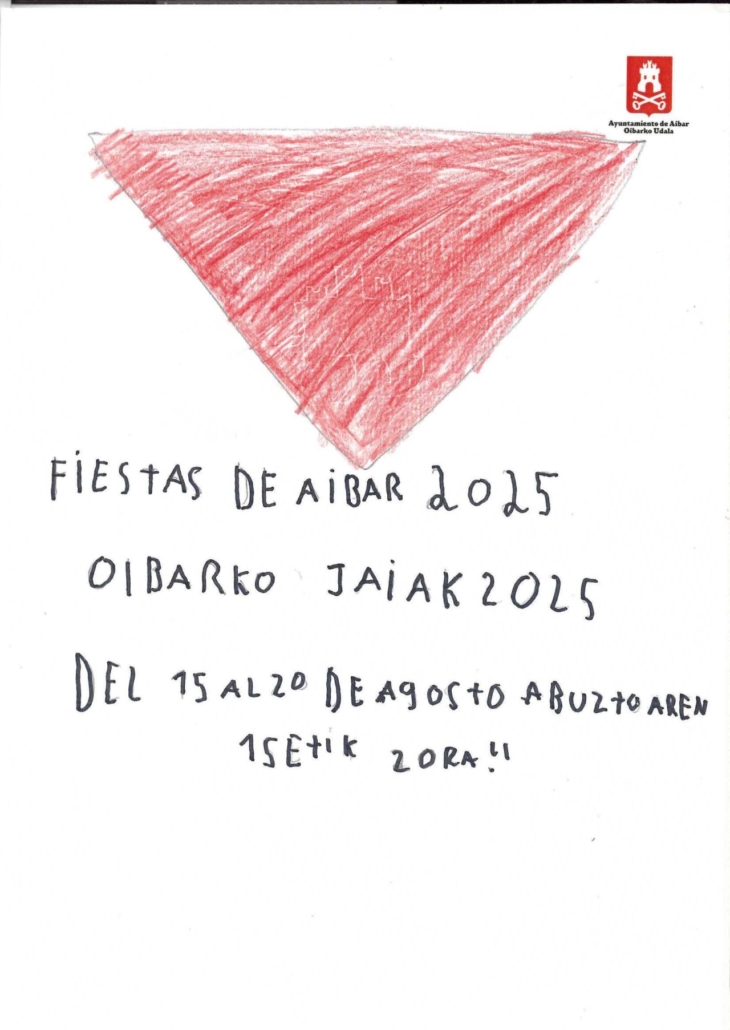 Ayuntamiento de Aibar
Oibarko Udala
FiESTAS DE AiBAR 2025
OIBARKO JAiAK 2025
DEL 15 AL 20 DE AGOSTO ABUZTOAREN
15ETIK 20RA!!